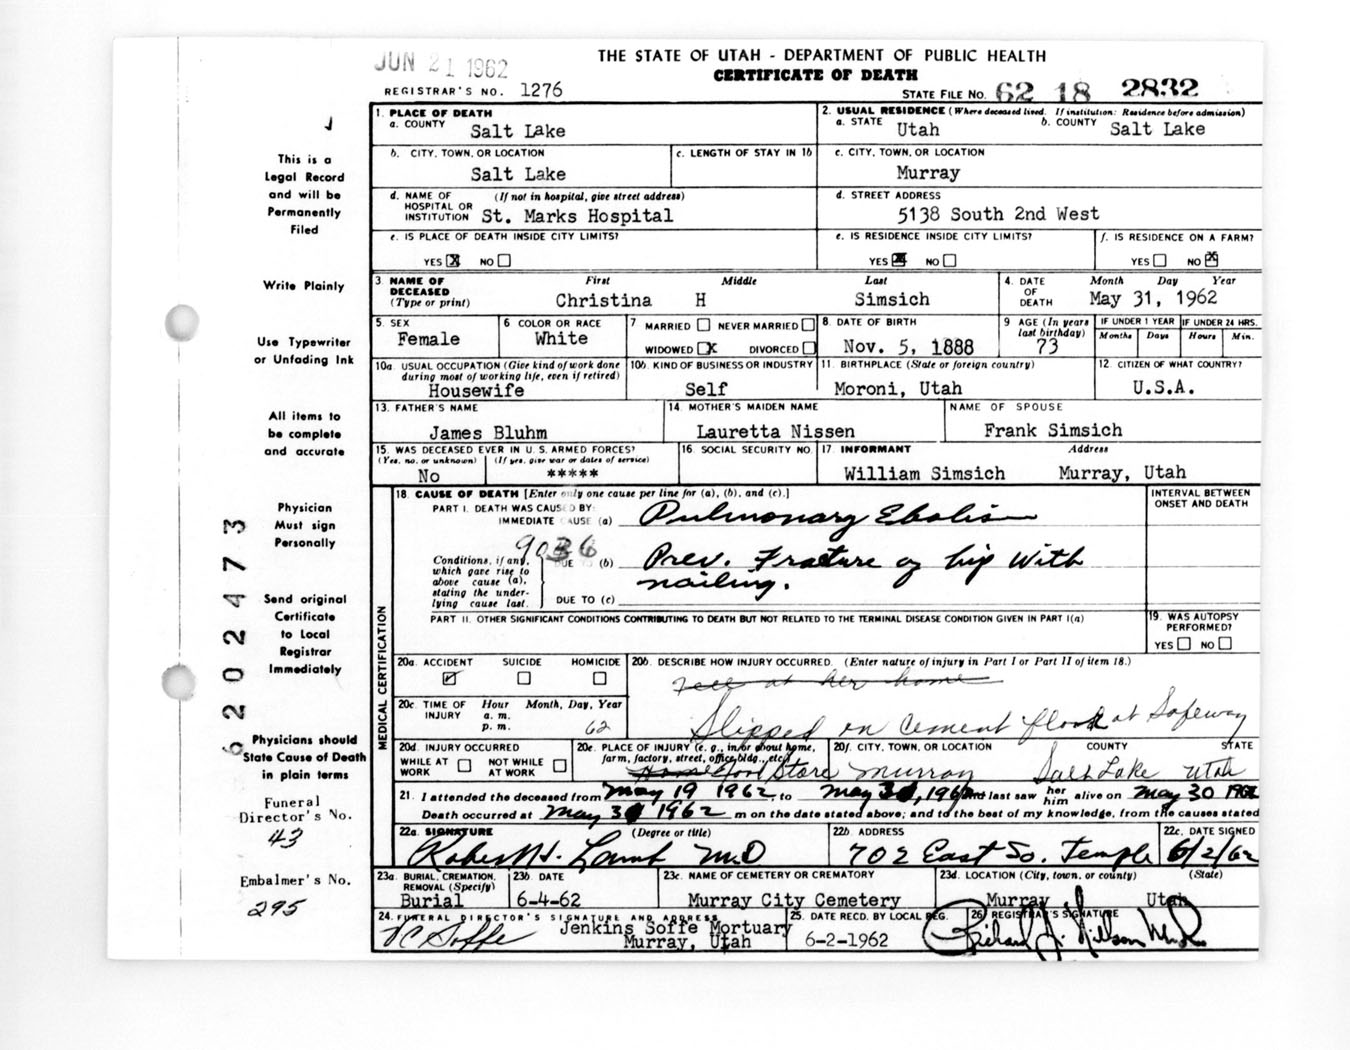 JUN 21 1962
THE STATE OF UTAH - DEPARTMENT OF PUBLIC HEALTH
CERTIFICATE OF DEATH
REGISTRAR'S NO. 1276
STATE FILE NO. 62 18 2832
This is a
Legal Record
and will be
Permanently
Filed
Write Plainly
Use Typewriter
or Unfading Ink
All items to
be complete
and accurate
Physician
Must sign
Personally
Send original
Certificate
to Local
Registrar
Immediately
Physicians should
State Cause of Death
in plain terms
Funeral
Director's No.
43
Embalmer's No.
295
6202473
1. PLACE OF DEATH
a. COUNTY Salt Lake
2. USUAL RESIDENCE (Where deceased lived. If institution: Residence before admission)
a. STATE Utah b. COUNTY Salt Lake
b. CITY, TOWN, OR LOCATION
Salt Lake
c. LENGTH OF STAY IN 1b
c. CITY, TOWN, OR LOCATION
Murray
d. NAME OF HOSPITAL OR INSTITUTION (If not in hospital, give street address)
St. Marks Hospital
d. STREET ADDRESS
5138 South 2nd West
e. IS PLACE OF DEATH INSIDE CITY LIMITS?
YES X NO
e. IS RESIDENCE INSIDE CITY LIMITS?
YES X NO
f. IS RESIDENCE ON A FARM?
YES NO X
3. NAME OF DECEASED (Type or print) First Middle Last
Christina H Simsich
4. DATE OF DEATH Month Day Year
May 31, 1962
5. SEX
Female
6 COLOR OR RACE
White
7 MARRIED NEVER MARRIED
WIDOWED X DIVORCED
8. DATE OF BIRTH
Nov. 5, 1888
9 AGE (In years last birthday)
73
IF UNDER 1 YEAR IF UNDER 24 HRS.
Months Days Hours Min.
10a. USUAL OCCUPATION (Give kind of work done during most of working life, even if retired)
Housewife
10b. KIND OF BUSINESS OR INDUSTRY
Self
11. BIRTHPLACE (State or foreign country)
Moroni, Utah
12. CITIZEN OF WHAT COUNTRY?
U.S.A.
13. FATHER'S NAME
James Bluhm
14. MOTHER'S MAIDEN NAME
Lauretta Nissen
NAME OF SPOUSE
Frank Simsich
15. WAS DECEASED EVER IN U.S. ARMED FORCES?
(Yes, no, or unknown) (If yes, give war or dates of service)
No *****
16. SOCIAL SECURITY NO.
17. INFORMANT Address
William Simsich Murray, Utah
MEDICAL CERTIFICATION
18. CAUSE OF DEATH [Enter only one cause per line for (a), (b), and (c).]
INTERVAL BETWEEN ONSET AND DEATH
PART I. DEATH WAS CAUSED BY:
IMMEDIATE CAUSE (a) Pulmonary Ebolism
9036
Conditions, if any, which gave rise to above cause (a), stating the underlying cause last.
DUE TO (b) Prev. Fracture of hip with
nailing.
DUE TO (c)
PART II. OTHER SIGNIFICANT CONDITIONS CONTRIBUTING TO DEATH BUT NOT RELATED TO THE TERMINAL DISEASE CONDITION GIVEN IN PART I(a)
19. WAS AUTOPSY PERFORMED?
YES NO
20a. ACCIDENT SUICIDE HOMICIDE
20b. DESCRIBE HOW INJURY OCCURRED. (Enter nature of injury in Part I or Part II of item 18.)
Fell at her home
Slipped on cement floor at Safeway
20c. TIME OF INJURY Hour Month, Day, Year
a. m.
p. m. 62
20d. INJURY OCCURRED
WHILE AT WORK NOT WHILE AT WORK
20e. PLACE OF INJURY (e. g., in or about home, farm, factory, street, office bldg., etc.)
Home Food Store
20f. CITY, TOWN, OR LOCATION COUNTY STATE
Murray Salt Lake Utah
21. I attended the deceased from May 19 1962, to May 30, 1962 and last saw her him alive on May 30 1962
Death occurred at May 30 1962 m on the date stated above; and to the best of my knowledge, from the causes stated
22a. SIGNATURE (Degree or title)
Robert H. Lamb M.D
22b. ADDRESS
702 East So. Temple
22c. DATE SIGNED
6/2/62
23a. BURIAL, CREMATION, REMOVAL (Specify)
Burial
23b. DATE
6-4-62
23c. NAME OF CEMETERY OR CREMATORY
Murray City Cemetery
23d. LOCATION (City, town, or county) (State)
Murray Utah
24. FUNERAL DIRECTOR'S SIGNATURE AND ADDRESS
Soffe Jenkins Soffe Mortuary
Murray, Utah
25. DATE RECD. BY LOCAL REG.
6-2-1962
26 REGISTRAR'S SIGNATURE